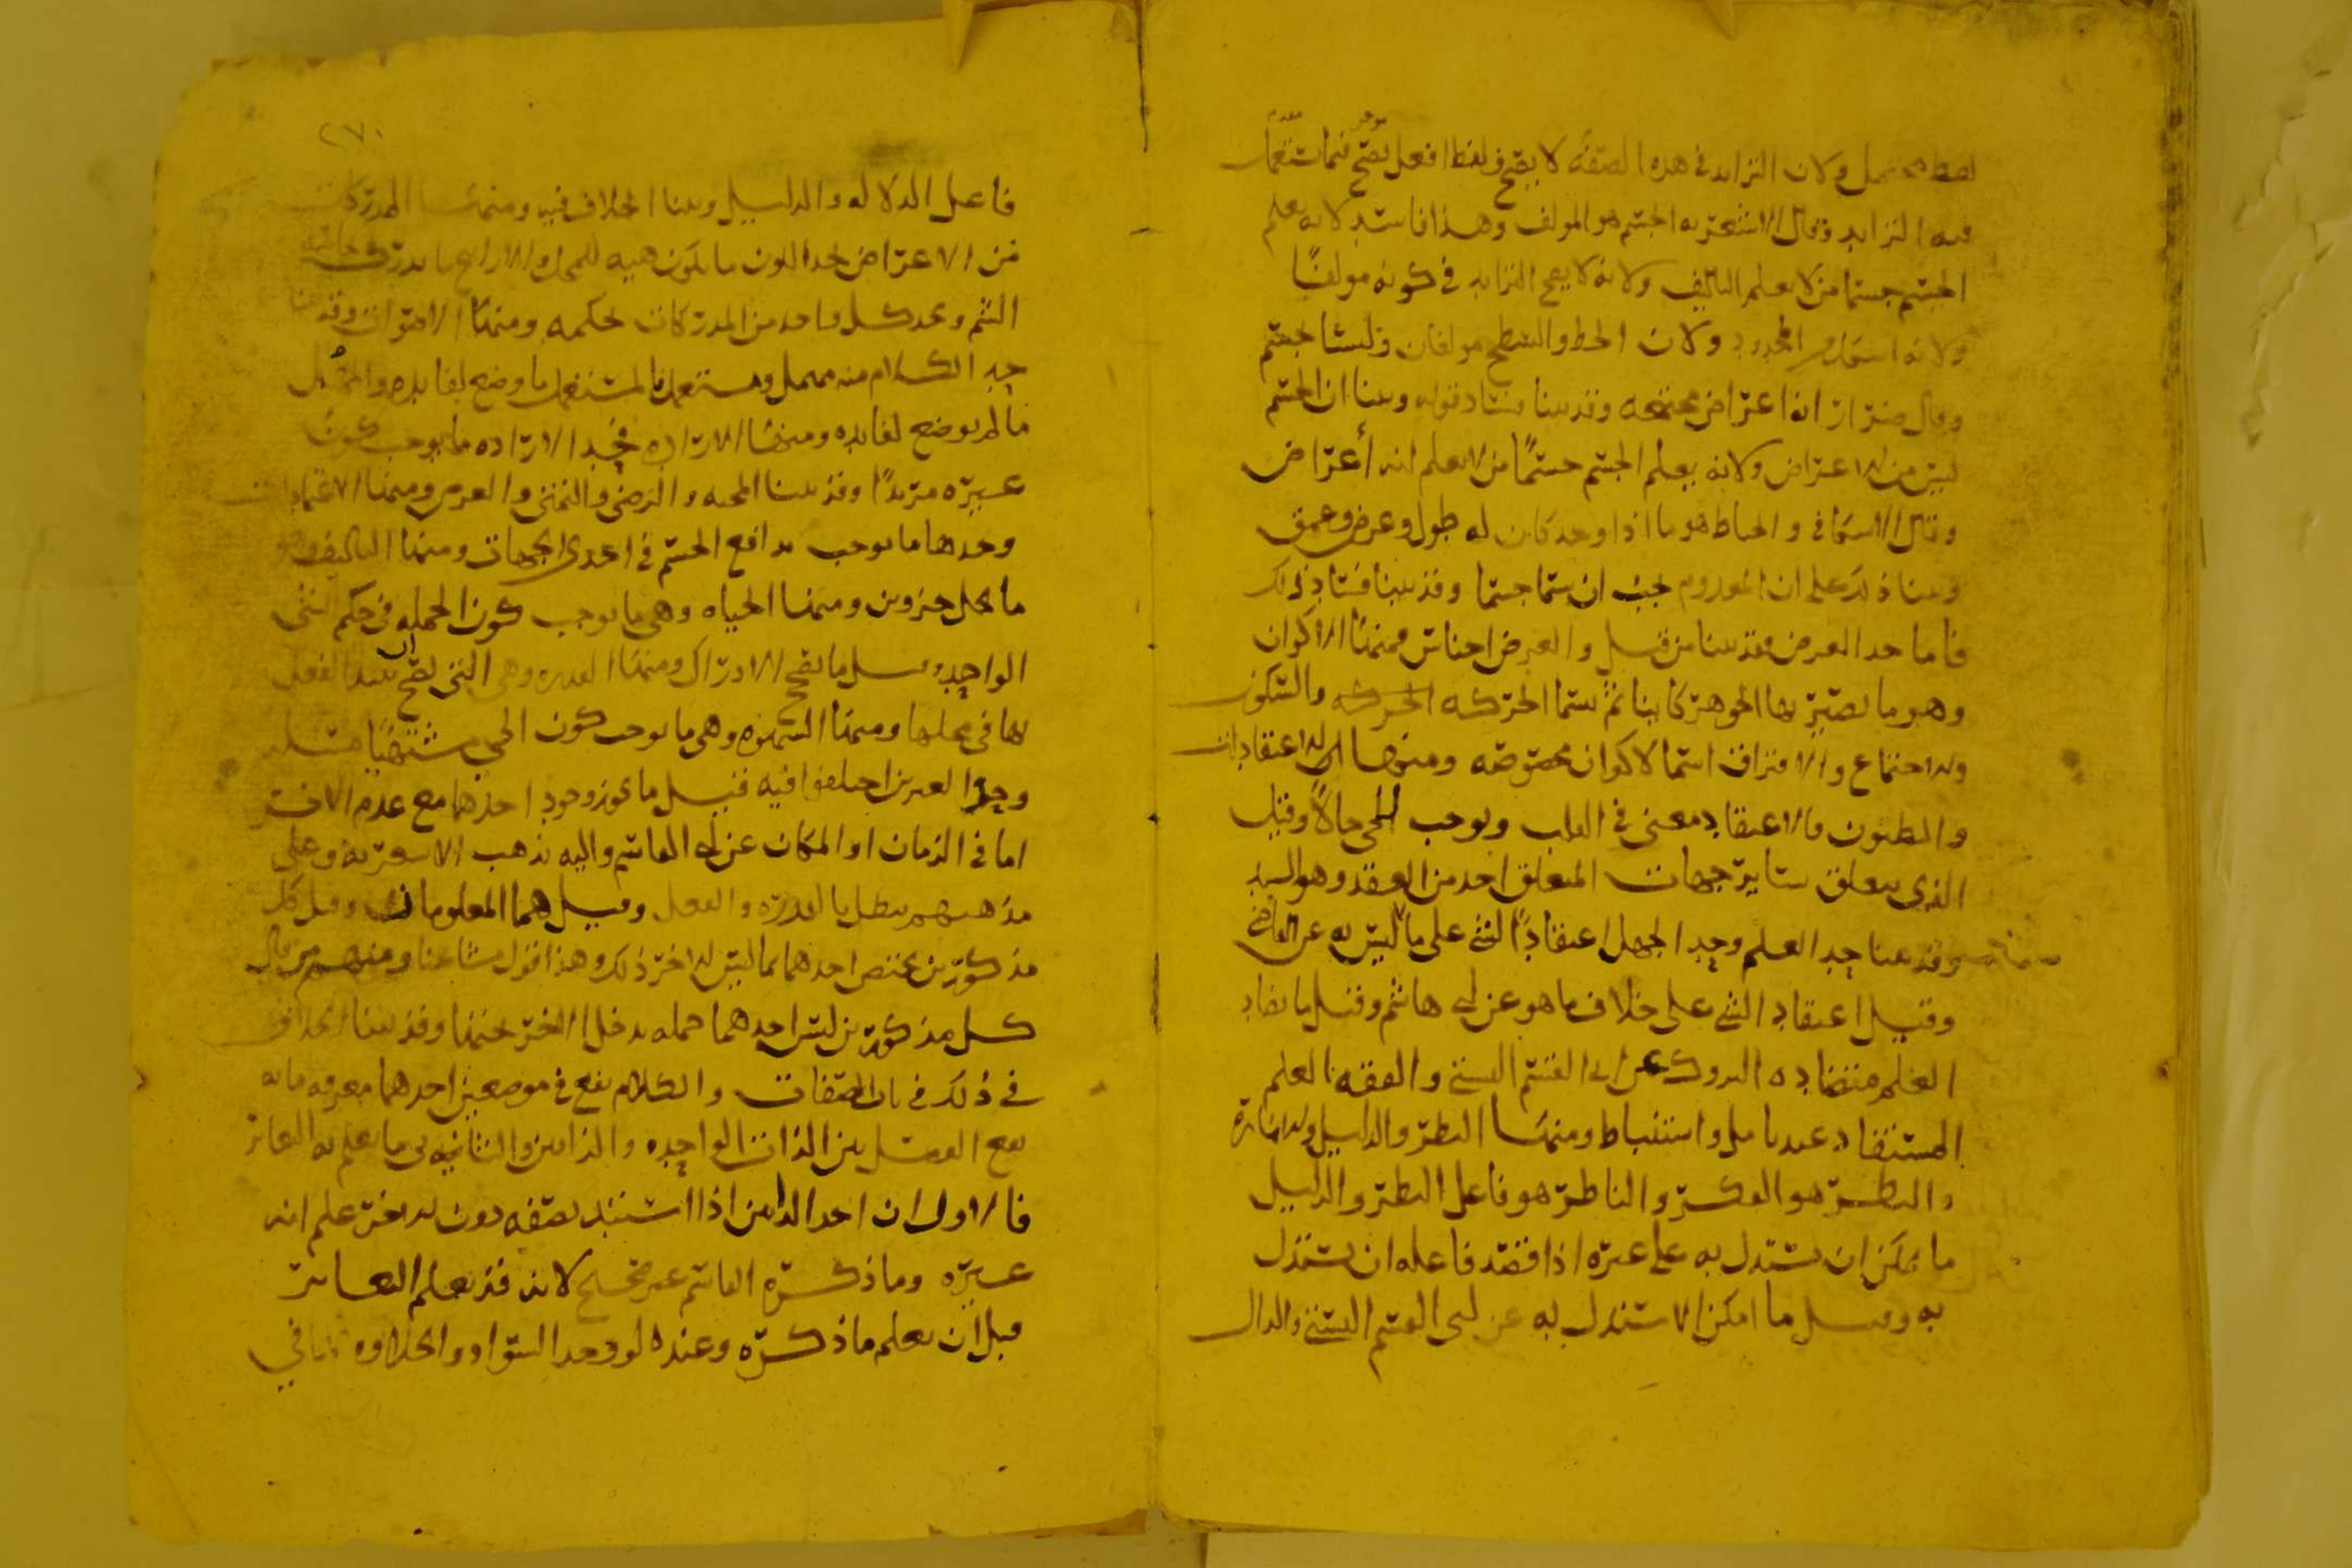 لفظ محتمل ولان التزايد في هذه الصفة لا يصح ولفظ افعل يصح فيما يستعمل
فيه التزايد وقال الاشعرية الجسم هو المولف وهذا فاسد لانه يعلم
الجسم جسما من لا يعلم التاليف ولانه لا يصح التزايد في كونه مولفا
ولانه الحدود ولان الخط والسطح مولفان وليسا بجسم
وقال ضرار انه اعراض مجتمعه وقد بينا فساد قوله وبينا ان الجسم
ليس من الاعراض ولانه يعلم الجسم جسما من لا يعلم انه أعراض
وقال الاسكافي والخياط هو ما اذا وجد كان له طول وعرض وعمق
وبينا ذلك على ان المعدوم يجب ان يسما جسما وقد بينا فساد ذلك
فاما حد العرض فقد بينا من قبل والعرض اجناس فمنها الاكوان
وهو ما يصير بها الجوهر كاينا ثم يسما الحركه الحركه والسكون
والاجتماع والافتراق اسما لاكوان مخصوصه ومنها الاعتقادات
والظنون فالاعتقاد معنى في القلب ويوجب للحي حالا وقيل
الذي يتعلق بساير جهات المتعلق اخذ من العقد وهو الشد
وقد بينا حد العلم وحد الجهل اعتقاد الشي على ما ليس به عن القاضي
وقيل اعتقاد الشي على خلاف ما هو عن ابي هاشم وقيل ما يضاد
العلم متضاده التروك عن ابي القسم البستي والفقه العلم
المستفاد عند تامل واستنباط ومنها النظر والدليل والاماره
والنظر هو الفكر والناظر هو فاعل النظر والدليل
ما يمكن ان يستدل به على غيره اذا قصد فاعله ان يستدل
به وقيل ما امكن الاستدلال به عن ابي القسم البستي والدال
٢٧٠
فاعل الدلاله والدليل وبينا الخلاف فيه ومنها المدركات
من الاعراض لحد اللون ما يكون هيه للمحل والارايح ما يدرك بحاسه
الشم وتحد كل واحد من المدركات بحكمه ومنها الاصوات وقد بينا
حد الكلام منه مهمل ومستعمل فالمستعمل ما وضع لفايده والمهمل
ما لم يوضع لفايده ومنها الاراده فحد الاراده ما يوجب كون
غيره مريدا وقد بينا المحبه والرضى والتمني والعزم ومنها الاعتمادات
وحدها ما يوجب تدافع الجسم في احدى الجهات ومنها التاليف وهو
ما يحل جزوين ومنها الحياه وهي ما يوجب كون الجمله في حكم الشي
الواحد وقيل ما يصح الادراك ومنها القدره وهي التي يصح ان يبتدا الفعل
بها في محلها ومنها الشهوه وهي ما يوجب كون الحي مشتهيا
وحد الغيرين اختلفوا فيه فقيل ما يجوز وجود احدهما مع عدم الاخر
اما في الزمان او المكان عن ابي القاسم واليه يذهب الاشعريه وعلى
مذهبهم يبطل بالقدره والفعل وقيل هما المعلومان وقيل كل
مذكورين يختص احدهما بما ليس للاخر ذلك وهذا قول مشايخنا ومنهم من قال
كل مذكورين ليس احدهما جمله يدخل الاخر تحتها وقد بينا الخلاف
في ذلك في باب الصفات والكلام يقع في موضعين احدهما معرفه ما به
يقع الفصل بين الذات الواحده والذاتين والثاني في ما يعلم به التغاير
فالاول ان احد الذاتين اذا استبد بصفه دون الاخر علم انه
غيره وما ذكره القاسم غير صحيح لانه قد يعلم التغاير
قبل ان يعلم ما ذكره وعنده لو وجد السواد والحلاوه في